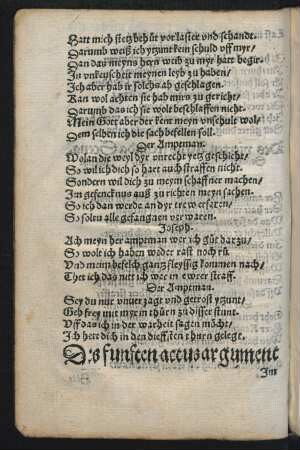 Hatt mich stetz behüt vor laster und schandt.
Darumb weiß ich yczunt kein schuld vff myr/
Dan das meyns hern weib zu myr hatt begir.
In vnkeuscheit meynen leyb zu haben/
Ich aber hab ir solchs ab geschlagen.
Kan wol achten sie hab mirs zu gericht/
Darumb das ich sie wolt beschlaffen nicht.
Mein Gott aber der kent meyn vnschult wol/
Dem selben ich die sach befellen soll.
Der Ampeman.
Wolan die weyl dyr vnrecht yetz geschicht/
So wil ich dich so hart auch straffen nicht.
Sondern wil dich zu meyn schaffner machen/
Im gefencknus auß zu richten meyn sachen.
So ich dan werde an dyr trew erfaren/
So solen alle gefangnen verwaren.
Joseph.
Ach meyn her ampeman wer ich gůt darzu/
So wolt ich haben wider rast noch rů.
Vnd meim befelch gantz fleyssig kommen nach/
Ehet ich das nit ich wer in ewer straff.
Der Amptman.
Sey du nur vnuerzagt vnd getrost yczunt/
Geh frey mit myr in thürn zu disser stunt.
Vff das ich in der warheit sagen möcht/
Ich hett dich in den dieffsten thurn gelegt.
Des funften actus argument
Im